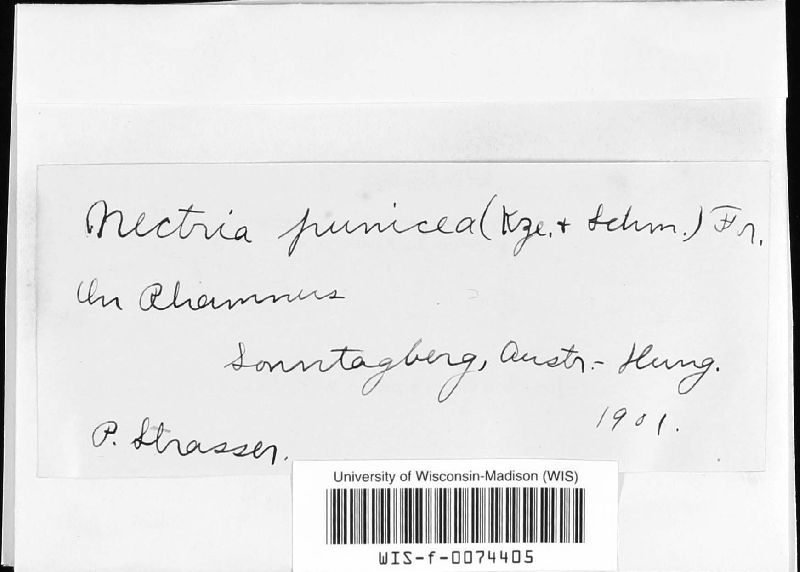 Nectria punicea (Kze. + Schm.) Fr.
On Rhamnus
Sonntagberg, Austr.- Hung.
1901.
P. Strasser.
University of Wisconsin-Madison (WIS)
WIS-f-0074405